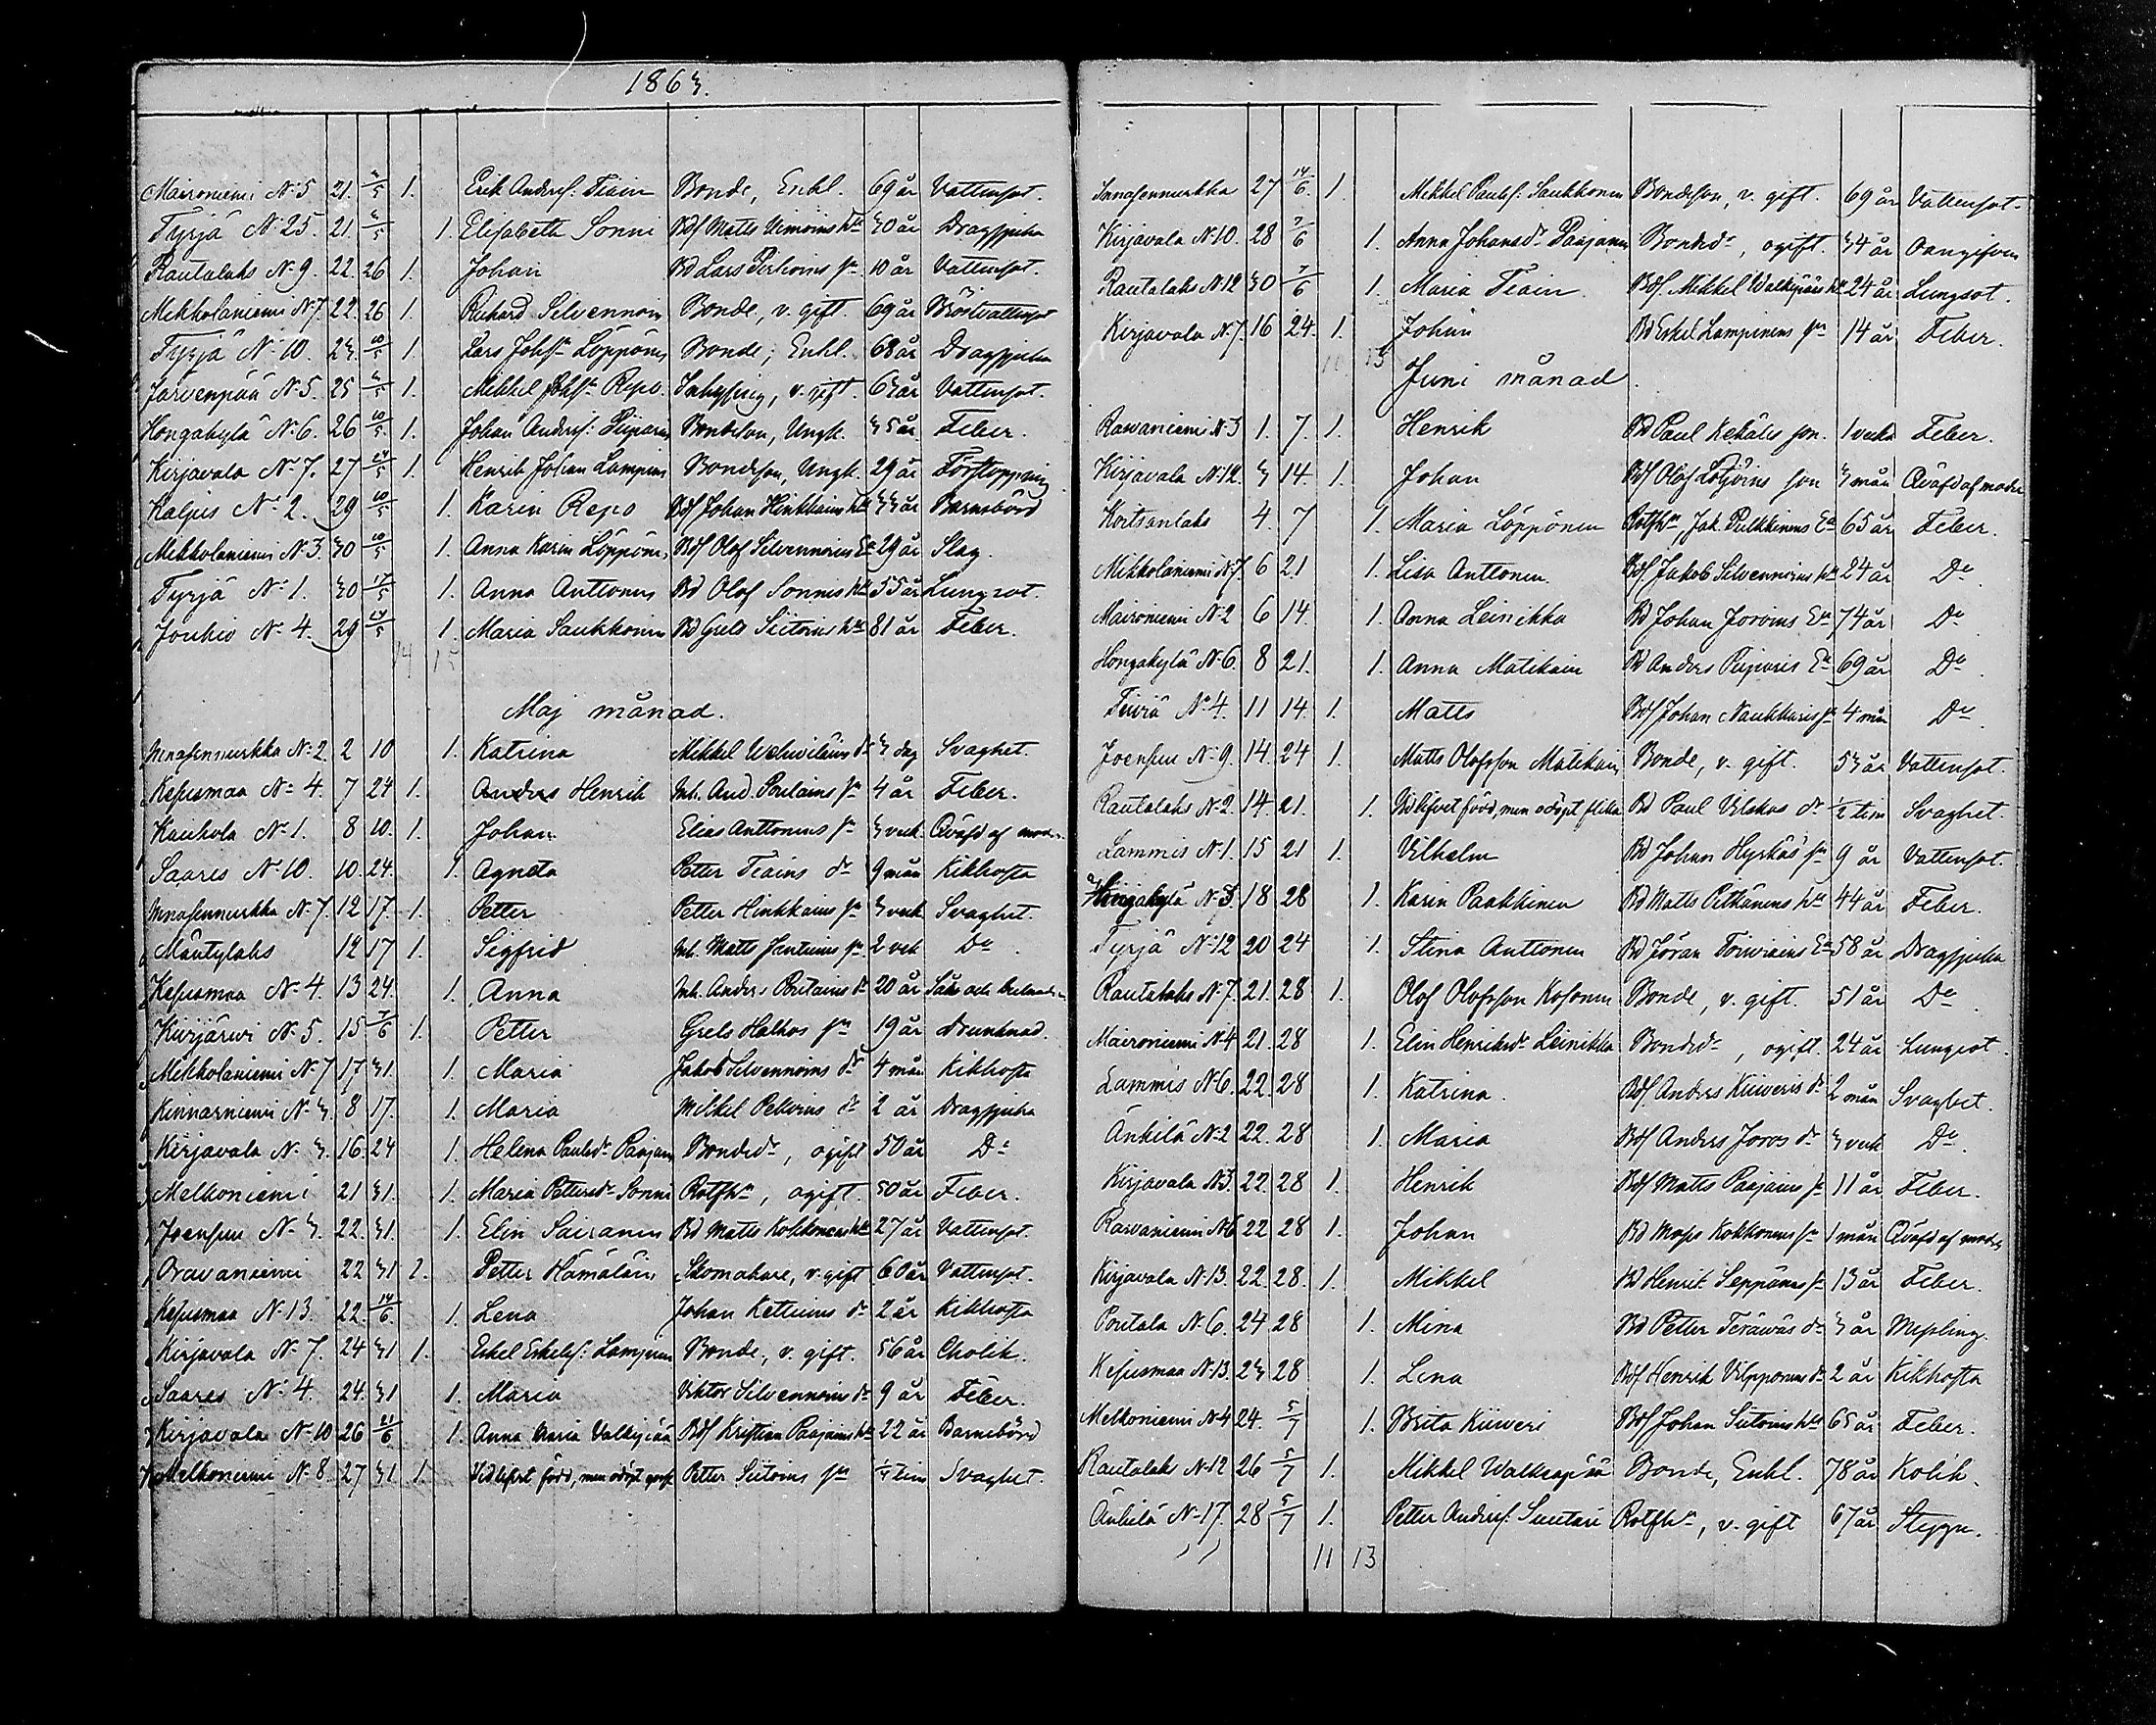 1863.
Maironiemi N:5 21. 3/5 1. Erik Andersf: Tiain Bonde, Enkl. 69 år Vattensot.
Tyrjä N:25. 21. 3/5 1. Elisabeth Sonni Bdsf Matts hu 30 år Dragsjuka
Rautalaks N:9. 22. 26 1. Johan Bd Lars sn 10 år Vattensot.
Mikkolaniemi N:7. 22. 26 1. Richard Silvennoin Bonde, v. gift. 69 år Bröstvattensot
Tyrjä N:10. 23. 10/5 1. Lars Johsn Löppönen Bonde, Enkl. 68 år Dragsjuka
Järvenpää N:5. 25 3/5 1. Mikkel Johsn Repo. Inhysing, v. gift. 63 år Vattensot.
Hongakylä N:6. 26 10/5 1. Johan Andersf: Bondeson, Ungk. 35 år Feber.
Kirjavala N:7. 27 24/5 1. Henrik Johan Lampin Bondeson, Ungk. 29 år Förstoppning
Kaljus N:2. 29 10/5 1. Karin Repo Bdsf Johan Hinkkains hu 33 år Barnsbörd
Mikkolaniemi N:3. 30 10/5 1. Anna Karin Löppönen Bdsf Olof Silvennoins Ea 29 år Slag.
Tyrjä N:1. 30 17/5 1. Anna Anttonen Bd Olof Sonnis hu 55 år Lungsot.
Joukio N:4. 29 24/5 1. Maria Saukkonen Bd Grels Siitoins hu 81 år Feber.
14 15
Maj månad.
N:2. 2 10 1. Katrina Mikkel dr 3 dag Svaghet.
Kesusmaa N:4. 7 24 1. Anders Henrik Inh. And. Poutains sn 4 år Feber.
Kauhola N:1. 8 10. 1. Johan Elias Anttonens sn 3 veck. Qväfd af moder
Saares N:10. 10. 24. 1. Agneta Petter Tiains dr 9 mån Kikhosta
N:7. 12 17. 1. Petter Petter Hinkkains sn 3 veck Svaghet.
Mäntylaks 12 17 1. Sigfrid Inh. Matts sn 2 vek Do
Kesusmaa N:4. 13 24. 1. Anna Inh. Anders Poutains dr 20 år
Kirjärvi N:5. 15 7/6 1. Petter Grels Halkos sn 19 år Drunknad.
Mikkolaniemi N:7 17 31. 1. Maria Jakob Silvennoins dr 4 mån Kikhosta
Kinnarniemi N:3. 8 17. 1. Maria Mikkel dr 2 år Dragsjuka
Kirjavala N:3. 16. 24 1. Helena Paulsdr Paajan Bondedr, ogift 50 år Do
Melkoniemi 21 31. 1. Maria Pettersdr Sonni Rothn, ogift. 30 år Feber.
Joensuu N:3. 22. 31. 1. Elin Sairanen Bd Matts Kokkonens hu 27 år Vattensot.
Oravaniemi 22 31 1. Petter Hämäläin Skomakare, v. gift 60 år Vattensot.
Kesusmaa N:13. 22. 14/6. 1. Lena Johan Kettuins dr 2 år Kikhosta
Kirjavala N:7. 24 31 1. Eskel Eskelsf: Lampinen Bonde, v. gift. 56 år Cholik.
Saares N:4. 24. 31 1. Maria Viktor Silvennoins dr 9 år Feber.
Kirjavala N:10 26 21/6 1. Anna Maria Valkjää Bdsf Kristian Paajains hu 22 år Barnsbörd
Melkoniemi N:8. 27 31 1. Vid lifvet född, men odöpt gosse Petter Siitoins sn 1/4 tim Svaghet.
27 14/6. 1. Mikkel Paulsf: Saukkonen Bondeson, v. gift. 69 år Vattensot.
Kirjavala N:10. 28 7/6 1. Anna Johansdr Paajanen Bondedr, ogift. 34 år Oangifven
Rautalaks N:12 30 7/6 1. Maria Tiain Bdsf. Mikkel hu 24 år Lungsot.
Kirjavala N:7. 16 24. 1. Johan Bd Eskel Lampinens sn 14 år Feber.
Juni månad.
Rasvaniemi N:3 1. 7. 1. Henrik Bd Paul Kekäles son. 1 vecka Feber.
Kirjavala N:12. 3 14. 1. Johan Bdsf Olof son 3 mån Qväfd af moder
Koitsanlaks 4. 7 1. Maria Löppönen Rothn, Jak. Pulkkinens Ea 65 år Feber.
Mikkolaniemi N:7. 6 21 1. Lisa Anttonen. Bdsf. Jakob Silvennoins hu 24 år Do
Maironiemi N:2 6 14. 1. Anna Leinikka Bd Johan Ea 74 år Do
Hongakylä N:6. 8 21. 1. Anna Matikain Bd Anders Ea 69 år Do
Tiurä N:4. 11 14. 1. Matts Bdsf Johan Naukkaris sn 4 mån Do
Joensuu N:9. 14. 24 1. Matts Olofsson Matikain Bonde, v. gift. 53 år Vattensot.
Rautalaks N:2. 14. 21. 1. Vid lifvet född, men odöpt flicka Bd Paul Vilskas dr 1/2 tim Svaghet.
Lammis N:1. 15 21 1. Vilhelm Bd Johan Hyrkäs sn 9 år Vattensot.
Hongakylä N:3. 18 28 1. Karin Paakkinen Bd Matts Pitkänens hu 44 år Feber.
Tyrjä N:12 20 24 1. Stina Anttonen Bd Jöran Toiviains Ea 58 år Dragsjuka
Rautalaks N:7. 21. 28 1. Olof Olofsson Kosonen Bonde, v. gift. 51 år Do
Maironiemi N:4 21. 28 1. Elin Henriksdr Leinikka Bondedr, ogift. 24 år Lungsot.
Lammis N:6. 22. 28 1. Katrina. Bdsf. Anders Kiiveris dr 2 mån Svaghet.
Änkilä N:2 22. 28 1. Maria Bdsf Anders Joros dr 3 veck Do
Kirjavala N:3. 22. 28 1. Henrik Bdsf Matts Paajains sn 11 år Feber.
Rasvaniemi N:6 22 28 1. Johan Bd Kokkonens sn 1 mån Qväfd af moder
Kirjavala N:13. 22. 28. 1. Mikkel Bd Henrik Seppänens sn 13 år Feber.
Poutala N:6. 24 28 1. Mina Bd Petter Teräväs dr 3 år Messling.
Kesusmaa N:13. 23 28 1. Lena Bdsf Henrik Vilpponens dr 2 år Kikhosta
Melkoniemi N:4 24. 5/7 1. Brita Kiiveri Bdsf Johan Siitoins hu 65 år Feber.
Rautalaks N:12 26 5/7 1. Mikkel Walkeapää Bonde, Enkl. 78 år Kolik.
Änkilä N:17. 28 5/7 1. Petter Andersf: Suutari Rothn, v. gift 67 år Styggn.
11 13